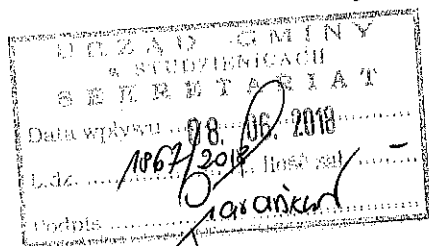 URZĄD GMINY
w STUDZIENICACH
SEKRETARIAT
Data wpływu ... 08. 06. 2018
L.dz. ... 1867/2018 ... Ilość zał. ... -
Podpis ...